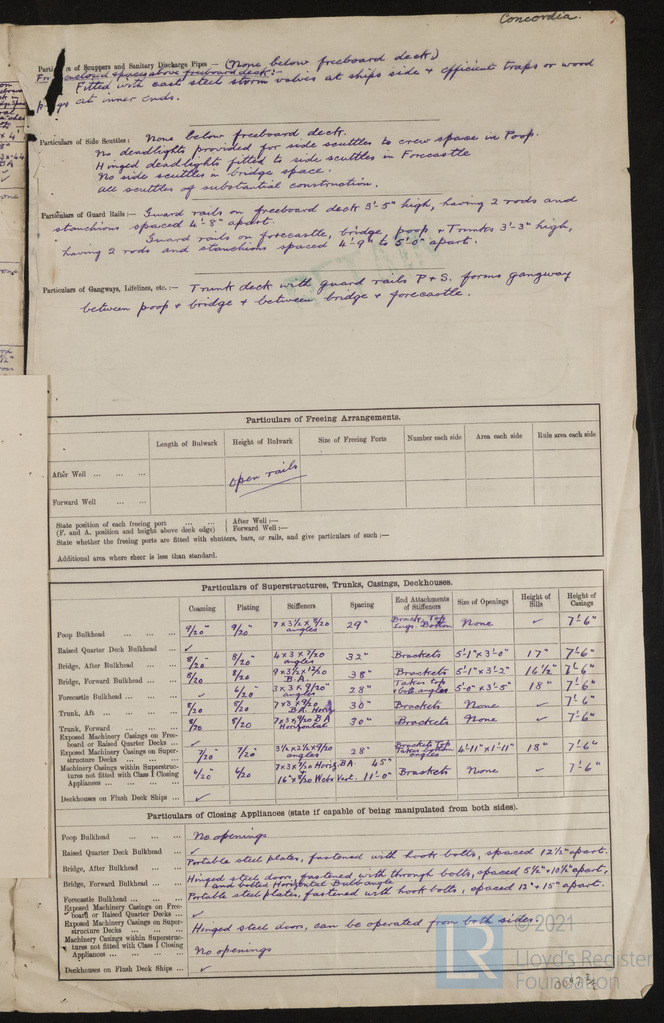 Concordia.
Particulars of Scuppers and Sanitary Discharge Pipes — (None below freeboard deck.)
For enclosed spaces above freeboard deck:-
Fitted with cast steel storm valves at ships side & efficient traps or wood
plugs at inner ends.
Particulars of Side Scuttles: None below freeboard deck.
No deadlights provided for side scuttles to crew space in Poop.
Hinged deadlights fitted to side scuttles in Forecastle
No side scuttles in bridge space.
All scuttles of substantial construction.
Particulars of Guard Rails:— Guard rails on freeboard deck 3'-5" high, having 2 rods and
stanchions spaced 4'-8" apart.
Guard rails on forecastle, bridge, poop & Trunks 3'-3" high,
having 2 rods and stanchions spaced 4'-9" to 5'-0" apart.
Particulars of Gangways, Lifelines, etc.:— Trunk deck with guard rails P & S. forms gangway
between poop & bridge & between bridge & forecastle.
Particulars of Freeing Arrangements.
Length of Bulwark Height of Bulwark Size of Freeing Ports Number each side Area each side Rule area each side
After Well ... ... ...
open rails
Forward Well ... ...
State position of each freeing port ... ... After Well :—
(F. and A. position and height above deck edge) Forward Well :—
State whether the freeing ports are fitted with shutters, bars, or rails, and give particulars of such :—
Additional area where sheer is less than standard.
Particulars of Superstructures, Trunks, Casings, Deckhouses.
Coaming Plating Stiffeners Spacing End Attachments of Stiffeners Size of Openings Height of Sills Height of Casings
Poop Bulkhead ... ... ... 9/20" 9/20" 7 x 3½ x 8/20 angles 29" Brack. Top Lugs. Bottom None ✓ 7'-6"
Raised Quarter Deck Bulkhead ... ✓
Bridge, After Bulkhead ... ... 8/20" 8/20" 4 x 3 x 7/20 angles 32" Brackets 5'-1" x 3'-0" 17" 7'-6"
Bridge, Forward Bulkhead ... ... 8/20 8/20 9 x 3½ x 12/20 B.A. 38" Brackets 5'-1" x 3'-2" 16½" 7'-6"
Forecastle Bulkhead ... ... ✓ 6/20" 3 x 3 x 9/20" angles 28" 5'-0" x 3'-5" 18" 7'-6"
Trunk, Aft ... ... ... 8/20 8/20 7 x 3 x 9/20 B.A. Horiz. 30" Brackets None ✓ 7'-6"
Trunk, Forward ... ... ... 8/20 8/20 7 x 3 x 9/20 B.A Horizontal 30" Brackets None ✓ 7'-6"
Exposed Machinery Casings on Freeboard or Raised Quarter Decks ... ✓
Exposed Machinery Casings on Superstructure Decks ... ... 7/20" 7/20" 3½ x 2½ x 9/20 angles 28" Brackets Top 4'-11" x 1'-11" 18" 7'-6"
Machinery Casings within Superstructures not fitted with Class I Closing Appliances ... ... ... 6/20" 6/20 7 x 3 x 8/20 Horiz. B.A. 45" 16" x 9/20 Webs Vert. 11'-0" Brackets None ✓ 7'-6"
Deckhouses on Flush Deck Ships ... ✓
Particulars of Closing Appliances (state if capable of being manipulated from both sides).
Poop Bulkhead ... ... ... No openings
Raised Quarter Deck Bulkhead ... ✓
Bridge, After Bulkhead ... ... Portable steel plates, fastened with hook bolts, spaced 12½" apart.
Bridge, Forward Bulkhead ... ... Hinged steel door, fastened with through bolts, spaced 5½" & 10½" apart,
and bolted Horizontal Bulb angle
Forecastle Bulkhead ... ... Portable steel plates, fastened with hook bolts, spaced 12" & 15" apart.
Exposed Machinery Casings on Freeboard or Raised Quarter Decks ... ✓
Exposed Machinery Casings on Superstructure Decks ... ... Hinged steel doors, can be operated from both sides.
Machinery Casings within Superstructures not fitted with Class I Closing Appliances ... ... ... No openings
Deckhouses on Flush Deck Ships ... ✓
LR
© 2021
Lloyd's Register
Foundation